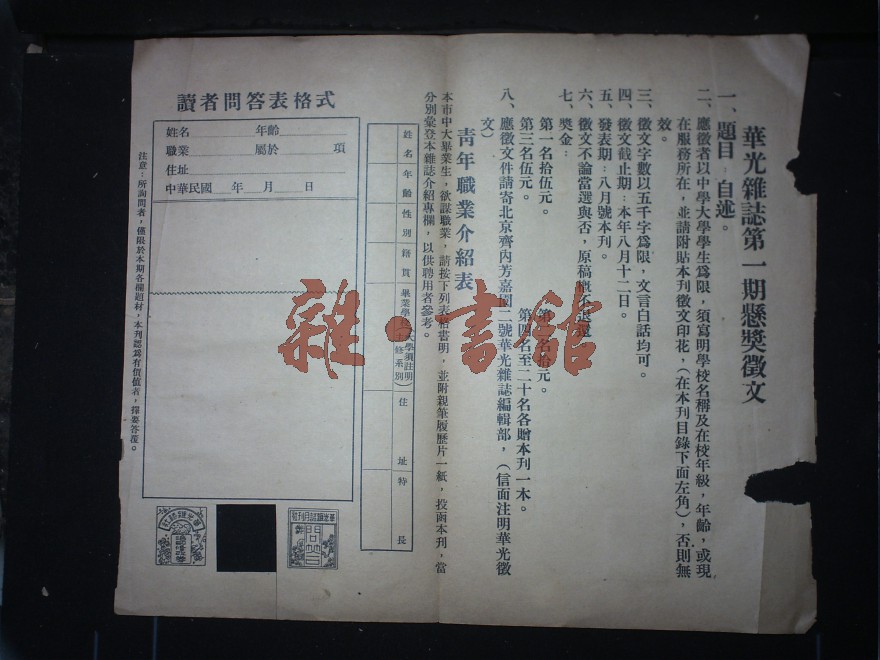 華光雜誌第一期懸獎徵文
一、題目：自述。
二、應徵者以中學大學學生爲限，須寫明學校名稱及在校年級，年齡，或現
在服務所在，並請附貼本刊徵文印花，（在本刊目錄下面左角），否則無
效。
三、徵文字數以五千字爲限，文言白話均可。
四、徵文截止期：本年八月十二日。
五、發表期：八月號本刊。
六、徵文不論當選與否，原稿概不退還
七、獎金：
第一名拾伍元。
第二名拾元。
第三名伍元。
第四名至二十名各贈本刊一本。
八、應徵文件請寄北京齊內芳嘉園二號華光雜誌編輯部，（信面注明華光徵
文）
靑年職業介紹表
本市中大畢業生，欲謀職業，請按下列表格書明，並附親筆履歷片一紙，投函本刊，當
分別彙登本雜誌介紹專欄，以供聘用者參考。
姓名
年齡
性別
籍貫
畢業學校（大學須註明主修系別）
住址
特長
讀者問答表格式
姓名 年齡
職業 屬於 項
住址
中華民國 年 月 日
注意：所詢問者，僅限於本期各欄題材，本刊認爲有價值者，擇要答覆。
雜·書館